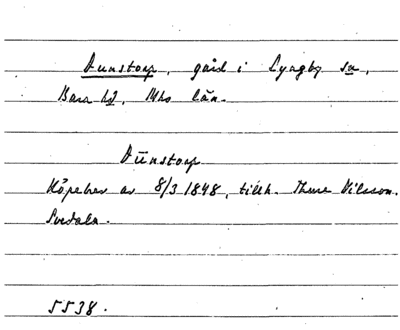 Dunstorp, gård i Lyngby sn,
Bara hd, Mhs län.
Dūnstorp
Köpebrev av 8/3 1848, tillh. Thure Nilsson.
Svedala.
5538.